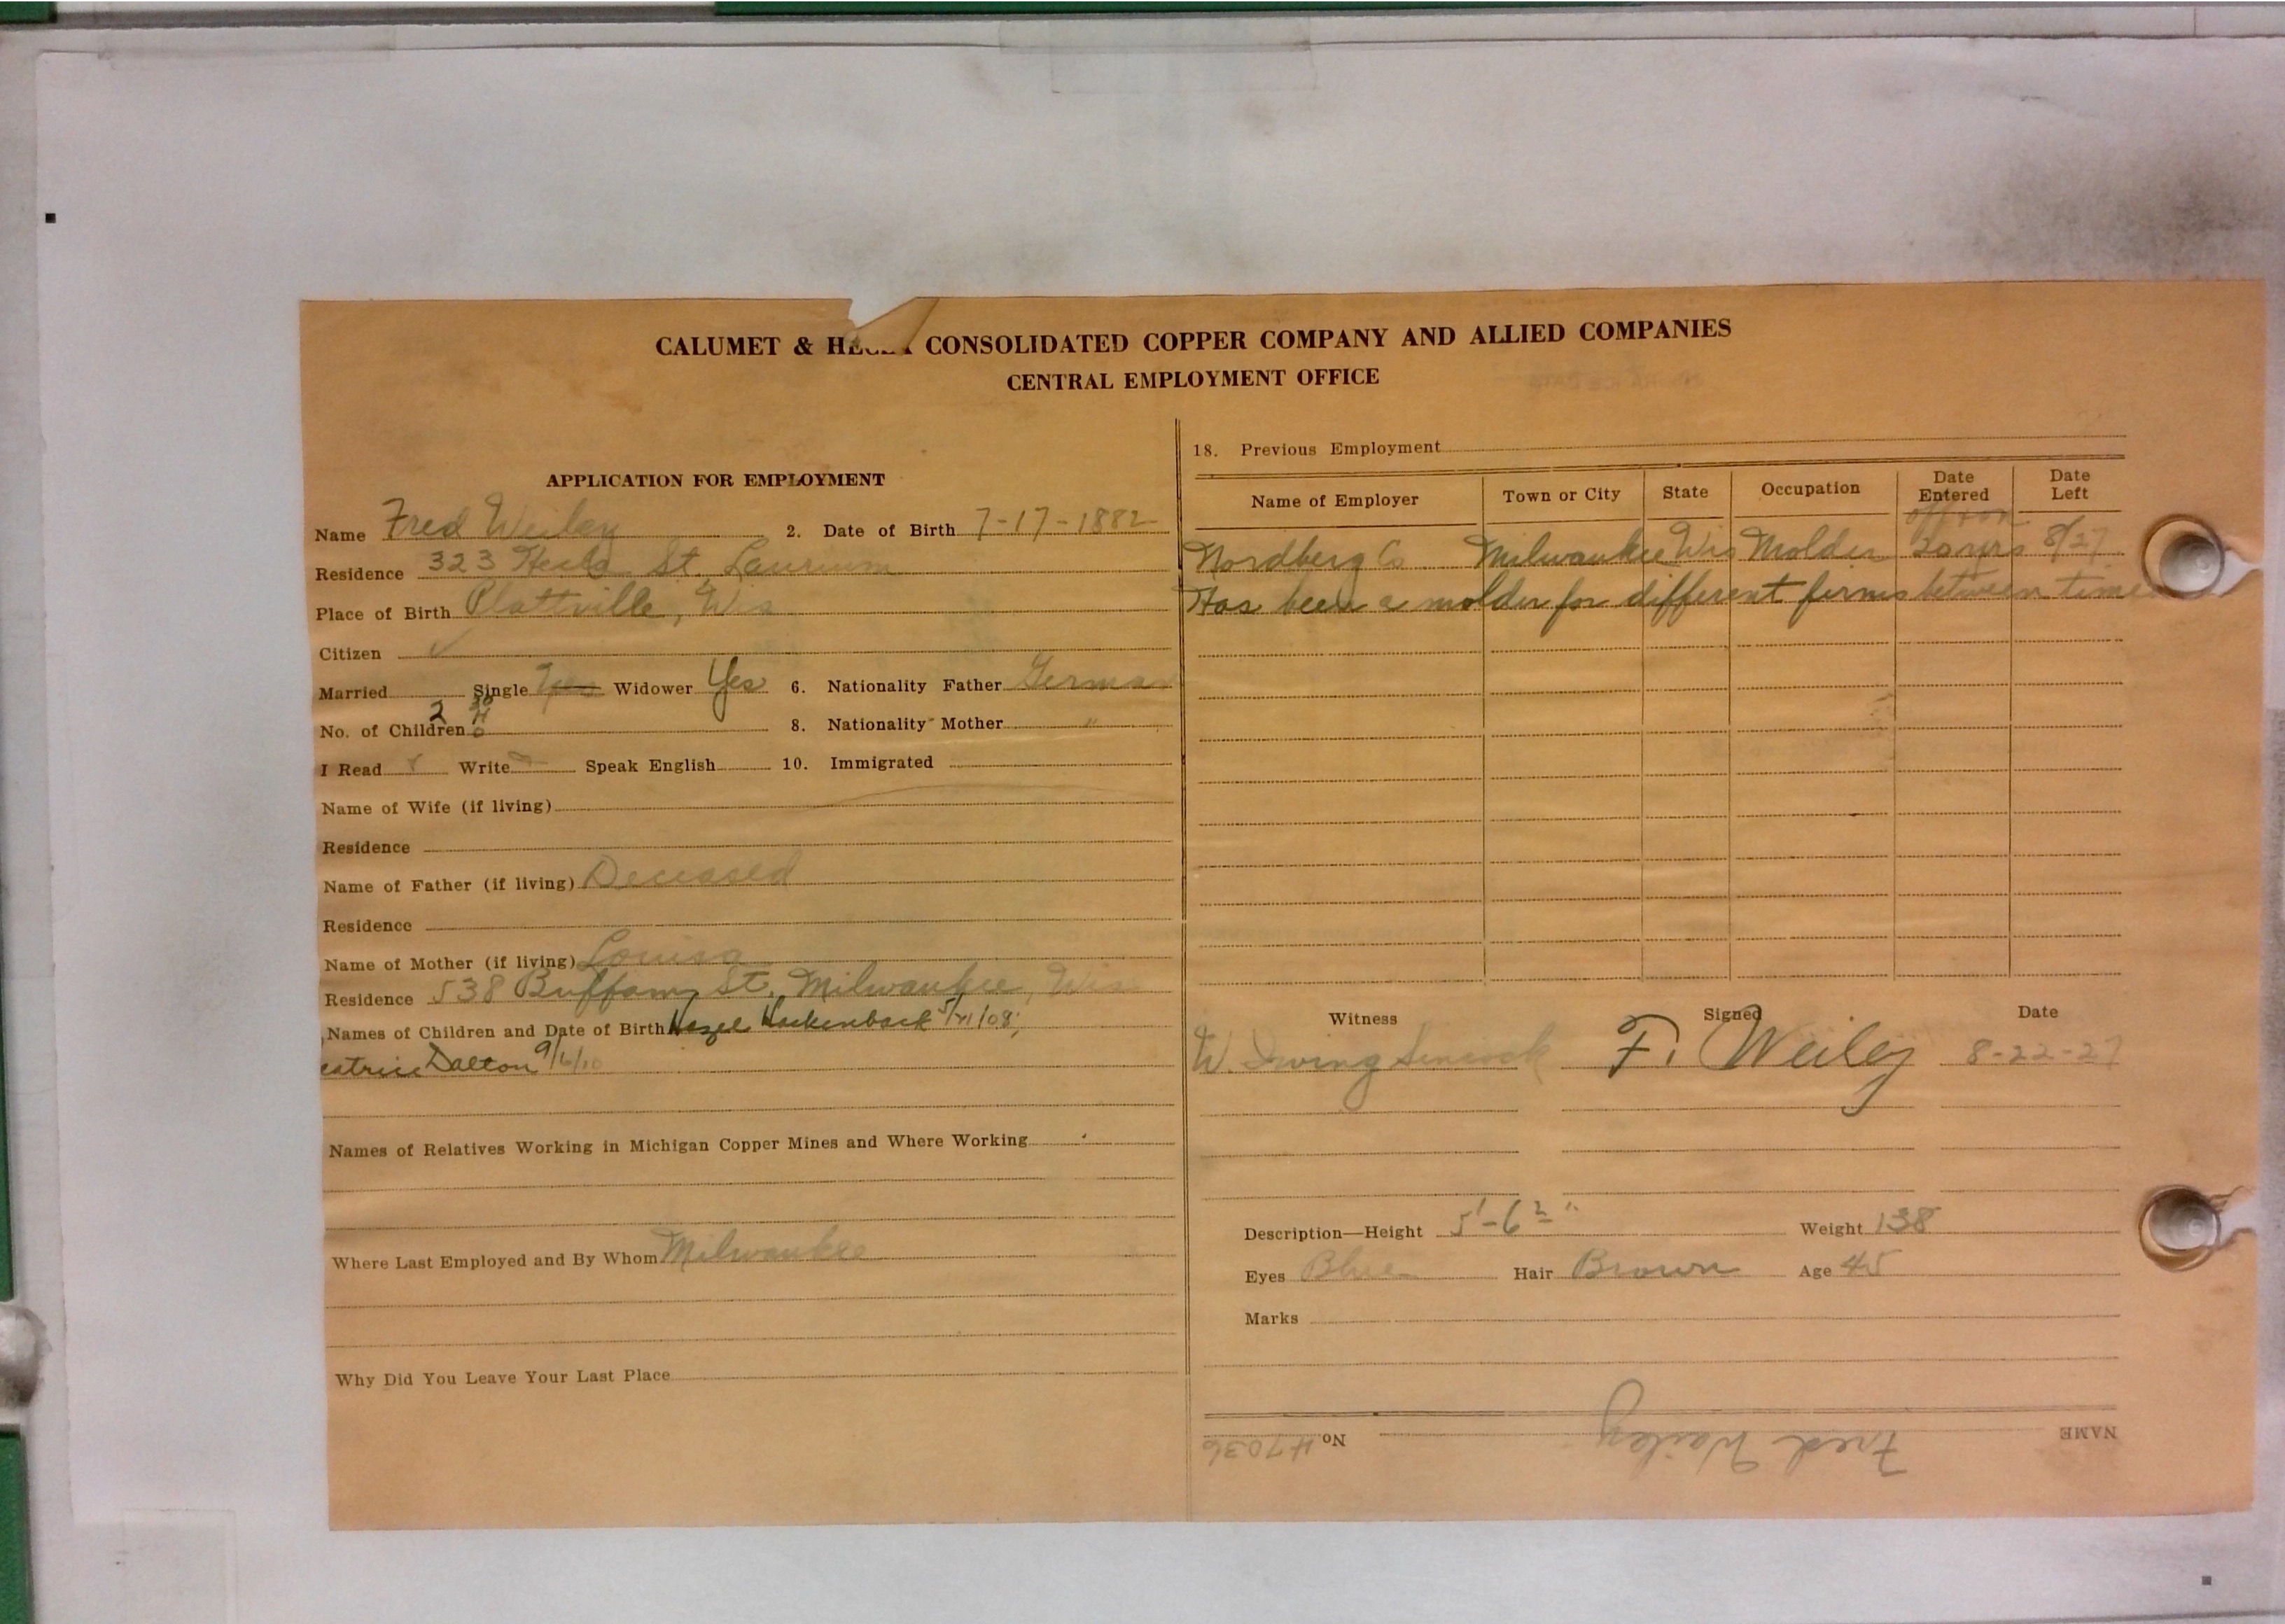 CALUMET & HECLA CONSOLIDATED COPPER COMPANY AND ALLIED COMPANIES
CENTRAL EMPLOYMENT OFFICE
APPLICATION FOR EMPLOYMENT
Name Fred Weiley 2. Date of Birth 7-17-1882
Residence 323 Hecla St. Laurium
Place of Birth Plattville, Wis
Citizen ✓
Married Single Yes Widower Yes 6. Nationality Father German
No. of Children 2 8. Nationality Mother "
I Read Write Speak English 10. Immigrated
Name of Wife (if living)
Residence
Name of Father (if living) Deceased
Residence
Name of Mother (if living) Louisa
Residence 538 Buffam St. Milwaukee, Wis
Names of Children and Date of Birth Hazel 5/21/08;
eatrice Dalton 9/6/10
Names of Relatives Working in Michigan Copper Mines and Where Working
Where Last Employed and By Whom Milwaukee
Why Did You Leave Your Last Place
18. Previous Employment
Name of Employer Town or City State Occupation Date Entered Date Left
off & on
Nordberg Co Milwaukee Wis Molder 20 yrs 8/27
Has been a molder for different firms between times
Witness Signed Date
W. Irving F. Weiley 8-22-27
Description—Height 5'-6 2/ " Weight 138
Eyes Blue Hair Brown Age 45
Marks
NAME Fred Weiley No. 47036